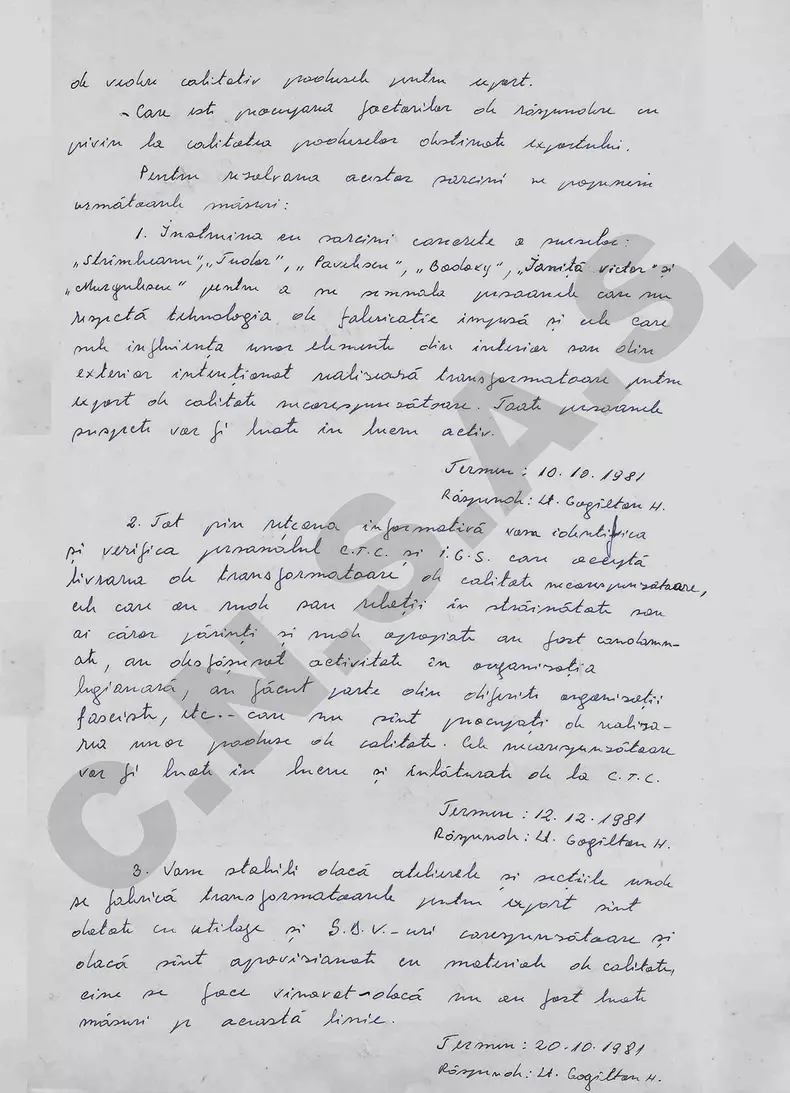 de vedere calitativ produsele pentru export.
- Care este preocuparea factorilor de răspundere cu
privire la calitatea produselor destinate exportului.
Pentru rezolvarea acestor sarcini ne propunem
următoarele măsuri:
1. Instruirea cu sarcini concrete a surselor:
„Strimbeanu", „Tudor", „Pavelescu", „Badoxy", „Ioniță Victor" și
„Murgulescu" pentru a ne semnala persoanele care nu
respectă tehnologia de fabricație impusă și cele care
sub influența unor elemente din interior sau din
exterior intenționat realizează transformatoare pentru
export de calitate necorespunzătoare. Toate persoanele
suspecte vor fi luate în lucru activ.
Termen: 10.10.1981
Răspunde: Lt. Gogiltan H.
2. Tot prin rețeaua informativă vom identifica
și verifica personalul C.T.C. și I.G.S. care acceptă
livrarea de transformatoare de calitate necorespunzătoare,
cele care au rude sau relații în străinătate sau
ai căror părinți și rude apropiate au fost condamn-
ate, au desfășurat activitate în organizația
legionară, au făcut parte din diferite organizații
fasciste, etc. - care nu sînt preocupați de realiza-
rea unor produse de calitate. Cele necorespunzătoare
vor fi luate în lucru și înlăturate de la C.T.C.
Termen: 12.12.1981
Răspunde: Lt. Gogiltan H.
3. Vom stabili dacă atelierele și secțiile unde
se fabrică transformatoarele pentru export sînt
dotate cu utilaje și S.D.V.-uri corespunzătoare și
dacă sînt aprovizionate cu materiale de calitate,
cine se face vinovat - dacă nu au fost luate
măsuri pe această linie.
Termen: 20.10.1981
Răspunde: Lt. Gogiltan H.
C.N.S.A.S.